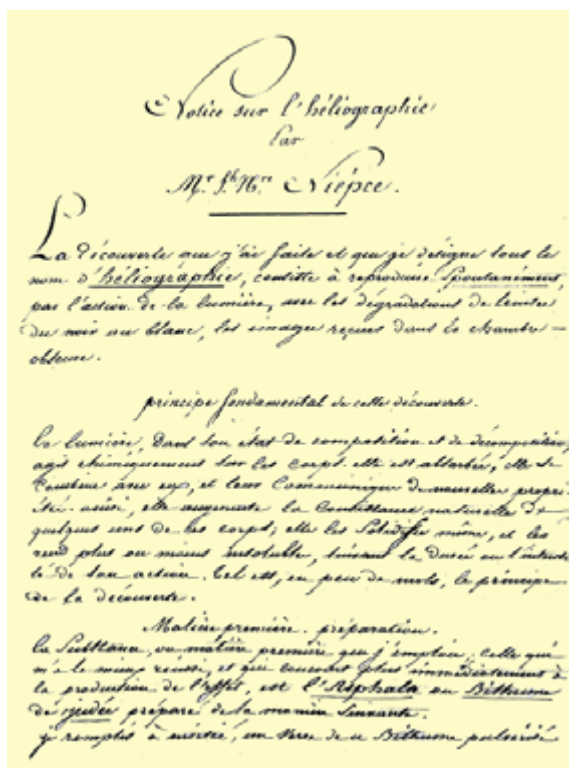 Notice sur l'héliographie
Par
Mr. Jh. Nre. Niépce.
La découverte que j'ai faite et que je désigne sous le
nom d'héliographie, consiste à reproduire spontanément,
par l'action de la lumière, avec les dégradations de teintes
du noir au blanc, les images reçues dans la chambre
obscure.
principe fondamental de cette découverte.
La lumière, dans son état de composition et de décomposition,
agit chimiquement sur les corps. elle est absorbée, elle se
combine avec eux, et leur communique de nouvelles propri
étés. ainsi, elle augmente la consistance naturelle de
quelques uns de ces corps; elle les solidifie même, et les
rend plus ou moins insoluble, suivant la durée ou l'intensi
té de son action. tel est, en peu de mots, le principe
de la découverte.
Matière première. préparation.
la substance, ou matière première que j'emploie, celle qui
m'a le mieux réussi, et qui concourt plus immédiatement à
la production de l'effet, est l'Asphalte ou Bithume
de judée préparé de la manière suivante.
je remplis à moitié, un verre de ce Bithume pulvérisé